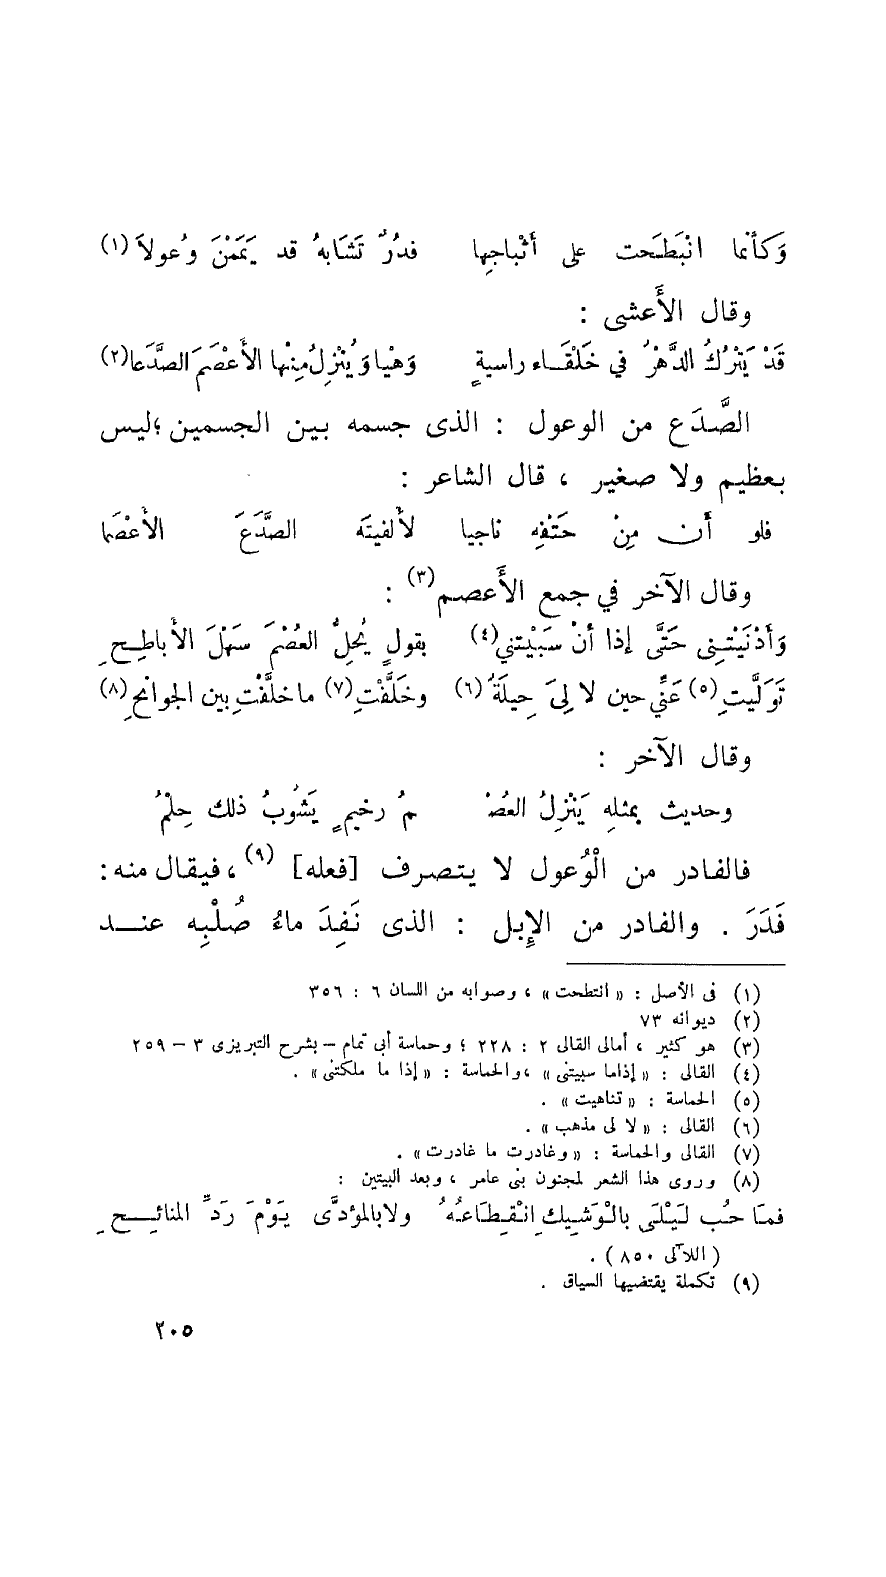 وَكأنما انْبَطَحت على أثْباجِها فدُرٌ تَشَابهُ قد يَمَمْنَ وُعولاَ (١)
وقال الأَعشى :
قَدْ يَتْرُكُ الدَّهْرُ في خَلْقَاء راسيةٍ وَهْيا وَيُنْزِلُ مِنْها الأَعْصَمَ الصَّدَعا (٢)
الصَّدَع من الوعول : الذى جسمه بين الجسمين ؛ ليس
بعظيم ولا صغير ، قال الشاعر :
فلو أَن مِنْ حَتْفِه ناجيا لأَلفيتَه الصَّدَعَ الأَعْصَما
وقال الآخر في جمع الأَعصم (٣) :
وَأَدْنَيْتِنِى حَتَّى إذا أنْ سَبَيْتِني (٤) بقولٍ يُحِلُّ العُصْمَ سَهْلَ الأباطِحِ
تَوَلَّيتِ (٥) عَنِّي حين لا لِىَ حِيلَةٌ (٦) وخَلَّفْتِ (٧) ما خلَّفْتِ بين الجوانحِ (٨)
وقال الآخر :
وحديث بمثلِه يَنْزِلُ العُصْـ ـمُ رخيمٍ يَشُوبُ ذلك حِلْمُ
فالفادر من الْوُعول لا يتصرف [فعله] (٩) ، فيقال منه :
فَدَرَ . والفادر من الإِبل : الذى نَفِدَ ماءُ صُلْبِه عنـد
(١) فى الأصل : « انتطحت » ، وصوابه من اللسان ٦ : ٣٥٦
(٢) ديوانه ٧٣
(٣) هو كثير ، أمالى القالى ٢ : ٢٢٨ ؛ وحماسة أبى تمام – بشرح التبريزى ٣ – ٢٥٩
(٤) القالى : « إذاما سبيتنى » ، والحماسة : « إذا ما ملكتنى » .
(٥) الحماسة : « تناهيت » .
(٦) القالى : « لا لى مذهب » .
(٧) القالى والحماسة : « وغادرت ما غادرت » .
(٨) وروى هذا الشعر لمجنون بنى عامر ، وبعد البيتين :
فمَا حُب لَيْلَى بالْوَشِيكِ انْقِطَاعُهُ ولابالمؤدَّى يَوْمَ رَدِّ المنائِحِ
( اللآلى ٨٥٠ ) .
(٩) تكملة يقتضيها السياق .
٢٠٥